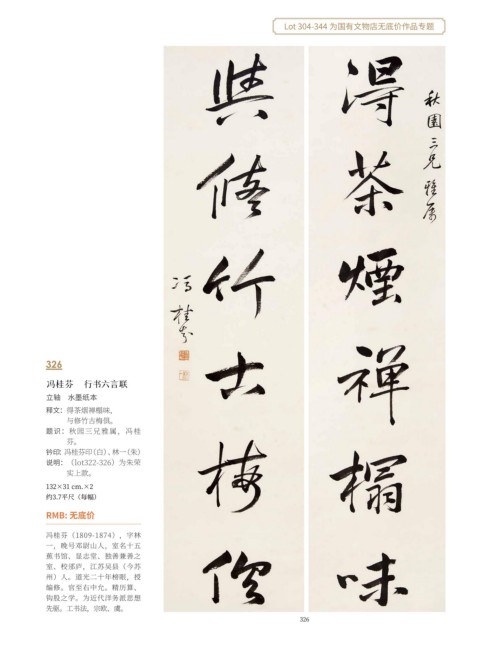 Lot 304-344 为国有文物店无底价作品专题
秋園三兄雅属
得茶煙禅榻味
與脩竹古梅俱
冯桂芬
326
冯桂芬 行书六言联
立轴 水墨纸本
释文:得茶烟禅榻味,
与修竹古梅俱。
题识:秋园三兄雅属,冯桂
芬。
钤印:冯桂芬印(白)、林一(朱)
说明:(lot322-326)为朱荣
实上款。
132×31 cm.×2
约3.7平尺(每幅)
RMB: 无底价
冯桂芬(1809-1874),字林
一,晚号邓尉山人,室名十五
蕉书馆、显志堂、独善兼善之
室、校邠庐,江苏吴县(今苏
州)人。道光二十年榜眼,授
编修。官至右中允。精历算、
钩股之学。为近代洋务派思想
先驱。工书法,宗欧、虞。
326